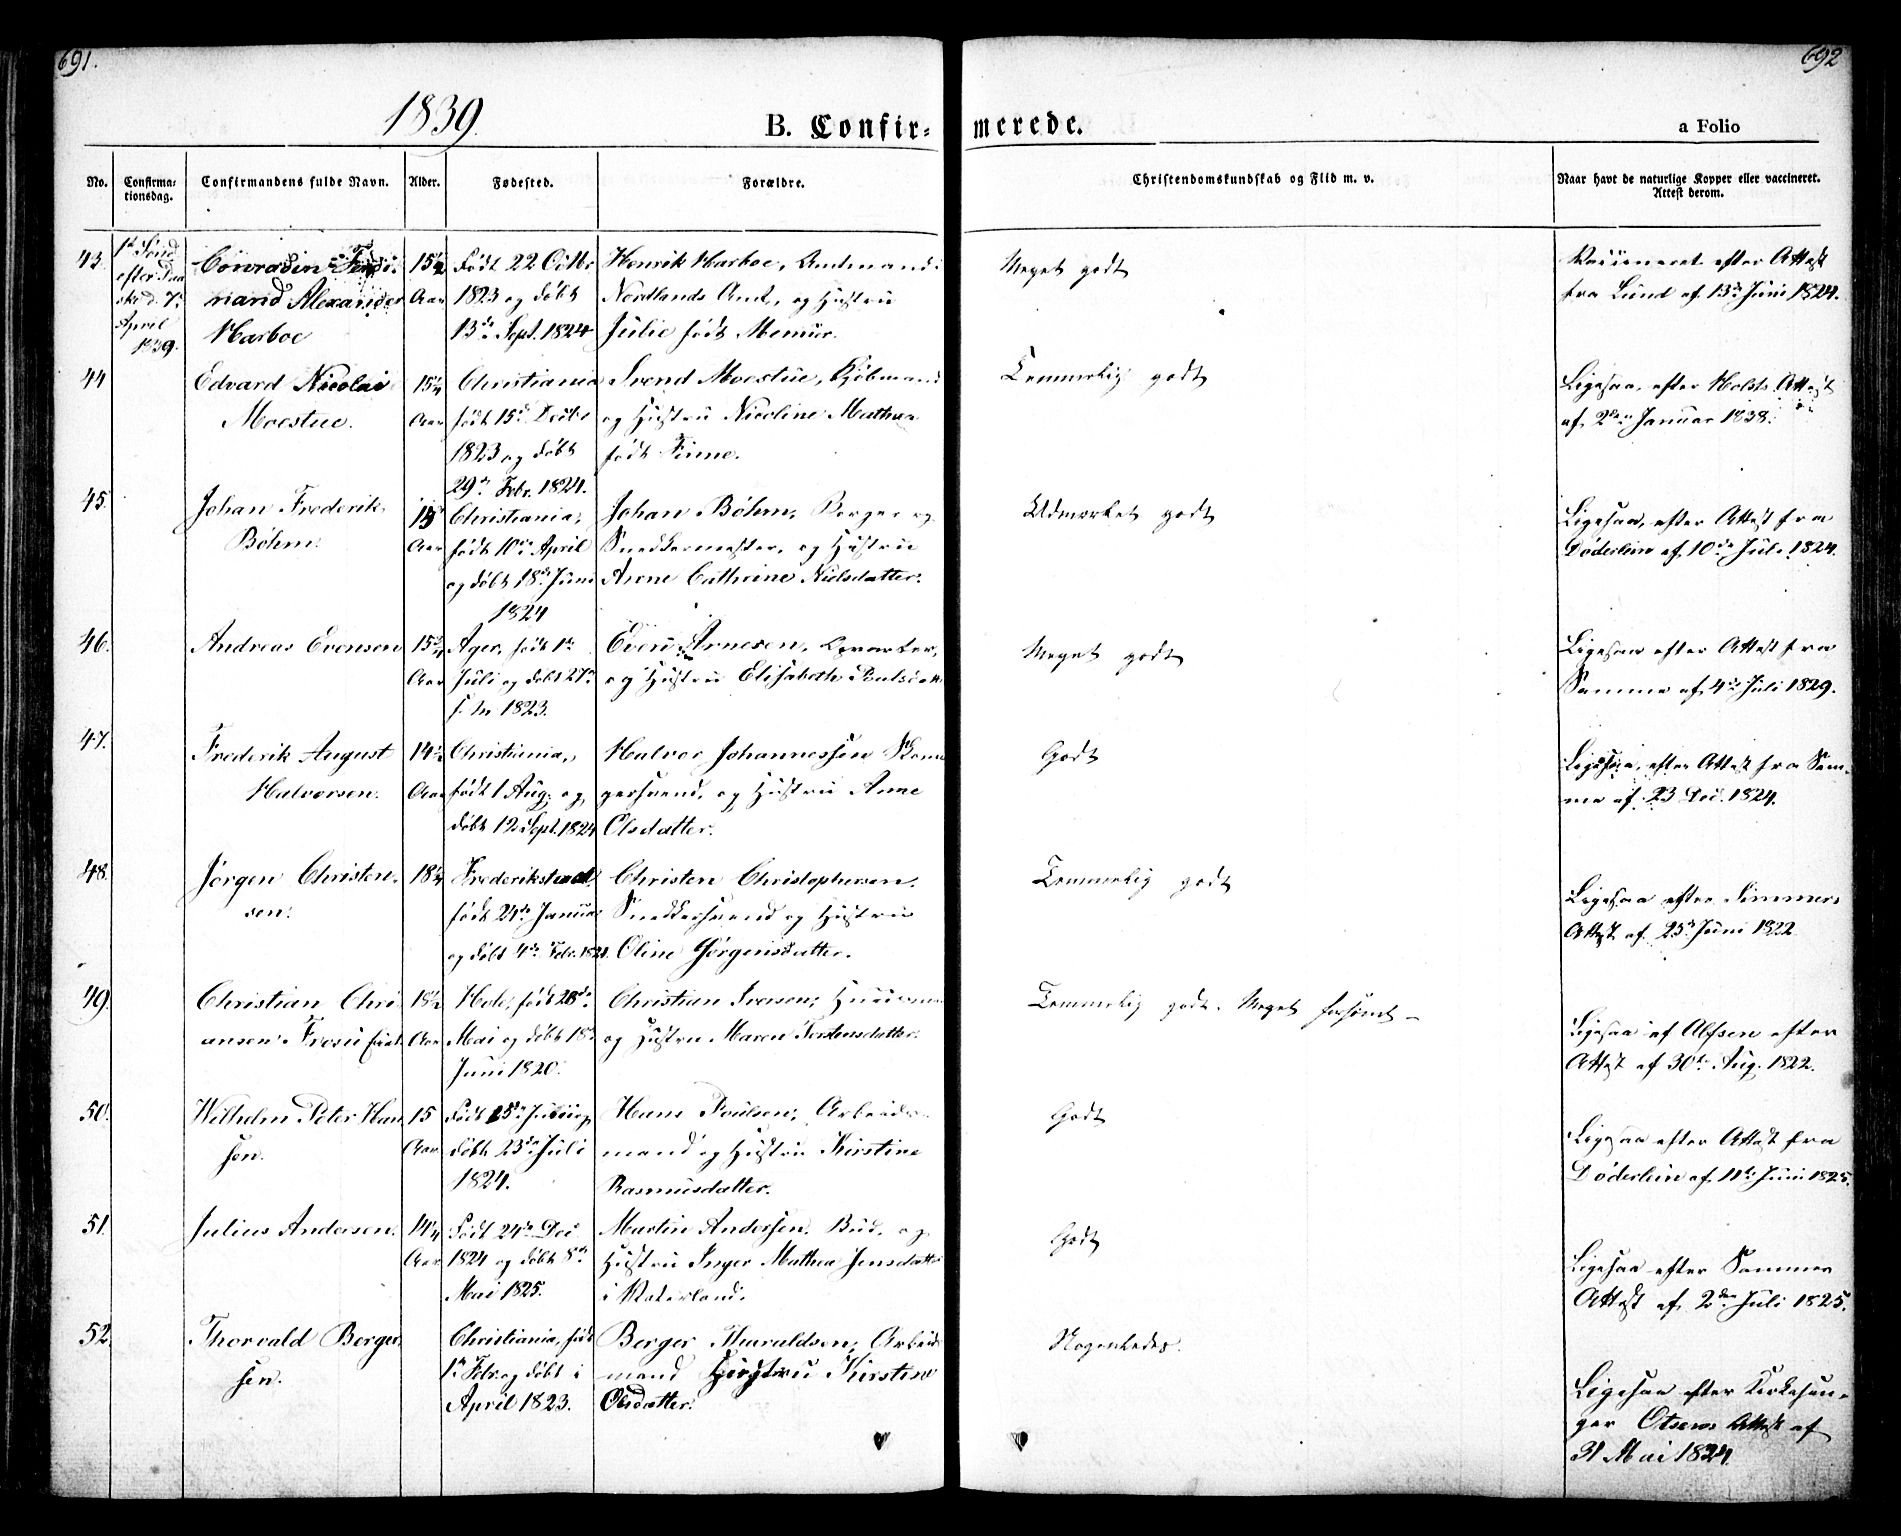 691.
692
1839.
B. Confir-
merede.
a Folio
No.
Confirma-
tionsdag.
Confirmandens fulde Navn.
Alder.
Fødested.
Forældre.
Christendomskundskab og Flid m. v.
Naar havt de naturlige Kopper eller vaccineret.
Attest derom.
43.
1ste Sønd.
efter Paa
ske d. 7de
April
1839.
Conradin Ferdi-
nand Alexander
Harboe
15½
Aar
Født 22 Octbr
1823 og døbt
13de Sept. 1824
Henrik Harboe, Amtmand i
Nordlands Amt, og Hustru
Julie født Memur.
Meget godt
Vaccineret efter Attest
fra Lund af 13de Juni 1824.
44
Edvard Nicolai
Moestue.
15¼
Aar
Christiania
født 15de Decbr
1823 og døbt
29de Febr. 1824.
Svend Moestue, Kjøbmand
og Hustru Nicoline Mathea
født
Temmelig godt
Ligesaa, efter Holsts Attest
af 2den Januar 1838.
45.
Johan Frederik
Bøhm.
15
Aar
Christiania,
født 10de April
og døbt 18de Juni
1824
Johan Bøhm, Borger og
Snedkermester, og Hustru
Anne Cathrine Nielsdatter.
Udmærket godt
Ligesaa, efter Attest fra
Døderlein af 10de Juli 1824.
46.
Andreas Evensen
15¾
Aar
Ager, født 1ste
Juli og døbt 27de
1823.
Even Arnesen,
og Hustru Elisabeth
Meget godt
Ligesaa efter Attest fra
Samme af 4de Juli 1829.
47.
Frederik August
Halvorsen.
14½
Aar
Christiania,
født 1 Aug. og
døbt 12 Sept. 1824
Halvor Johannessen
gersvend, og Hustru Anne
Olsdatter.
Godt
Ligesaa, efter Attest fra Sam-
me af 23 Dec. 1824.
48.
Jørgen Christen-
sen.
18¼
Frederikstad,
født 24de Januar
og døbt 4de Febr. 1821.
Christen Christophersen,
Snedkersvend og Hustru
Oline Jørgensdatter.
Temmelig godt
Ligesaa efter Simmers
Attest af 25de Juni 1822
49.
Christian Chri
ansen
18½
Aar
Hole, født 28de
Mai og døbt 18de
Juni 1820.
Christian Iversen, Huusm
og Hustru Maren Torstensdatter.
Temmelig godt. Meget forsømt –
Ligesaa af Alfsen efter
Attest af 30te Aug. 1822.
50.
Wilhelm Peter Han
sen.
15
Aar
Født 25de Juni og
døbt 23de Juli
1824.
Hans Poulsen, Arbeids-
mand og Hustru Kirstine
Rasmusdatter.
Godt
Ligesaa efter Attest fra
Døderlein af 11te Juni 1825.
51.
Julius Andersen.
14¼
Aar
Født 24de Dec
1824 og døbt 8de
Mai 1825.
Martin Andersen, Bud, og
Hustru Inger Mathea Jensdatter
i Vaterland.
Godt
Ligesaa efter Sammes
Attest af 2den Juli 1825.
52.
Thorvald Berger
sen.
Christiania, født
1ste Febr. og døbt i
April 1823.
Berger Tharaldsen, Arbeids
mand Hustru Kirstine
Olsdatter.
Nogenledes.
Ligesaa efter Kirkesan-
ger Otsens Attest af
31 Mai 1824.